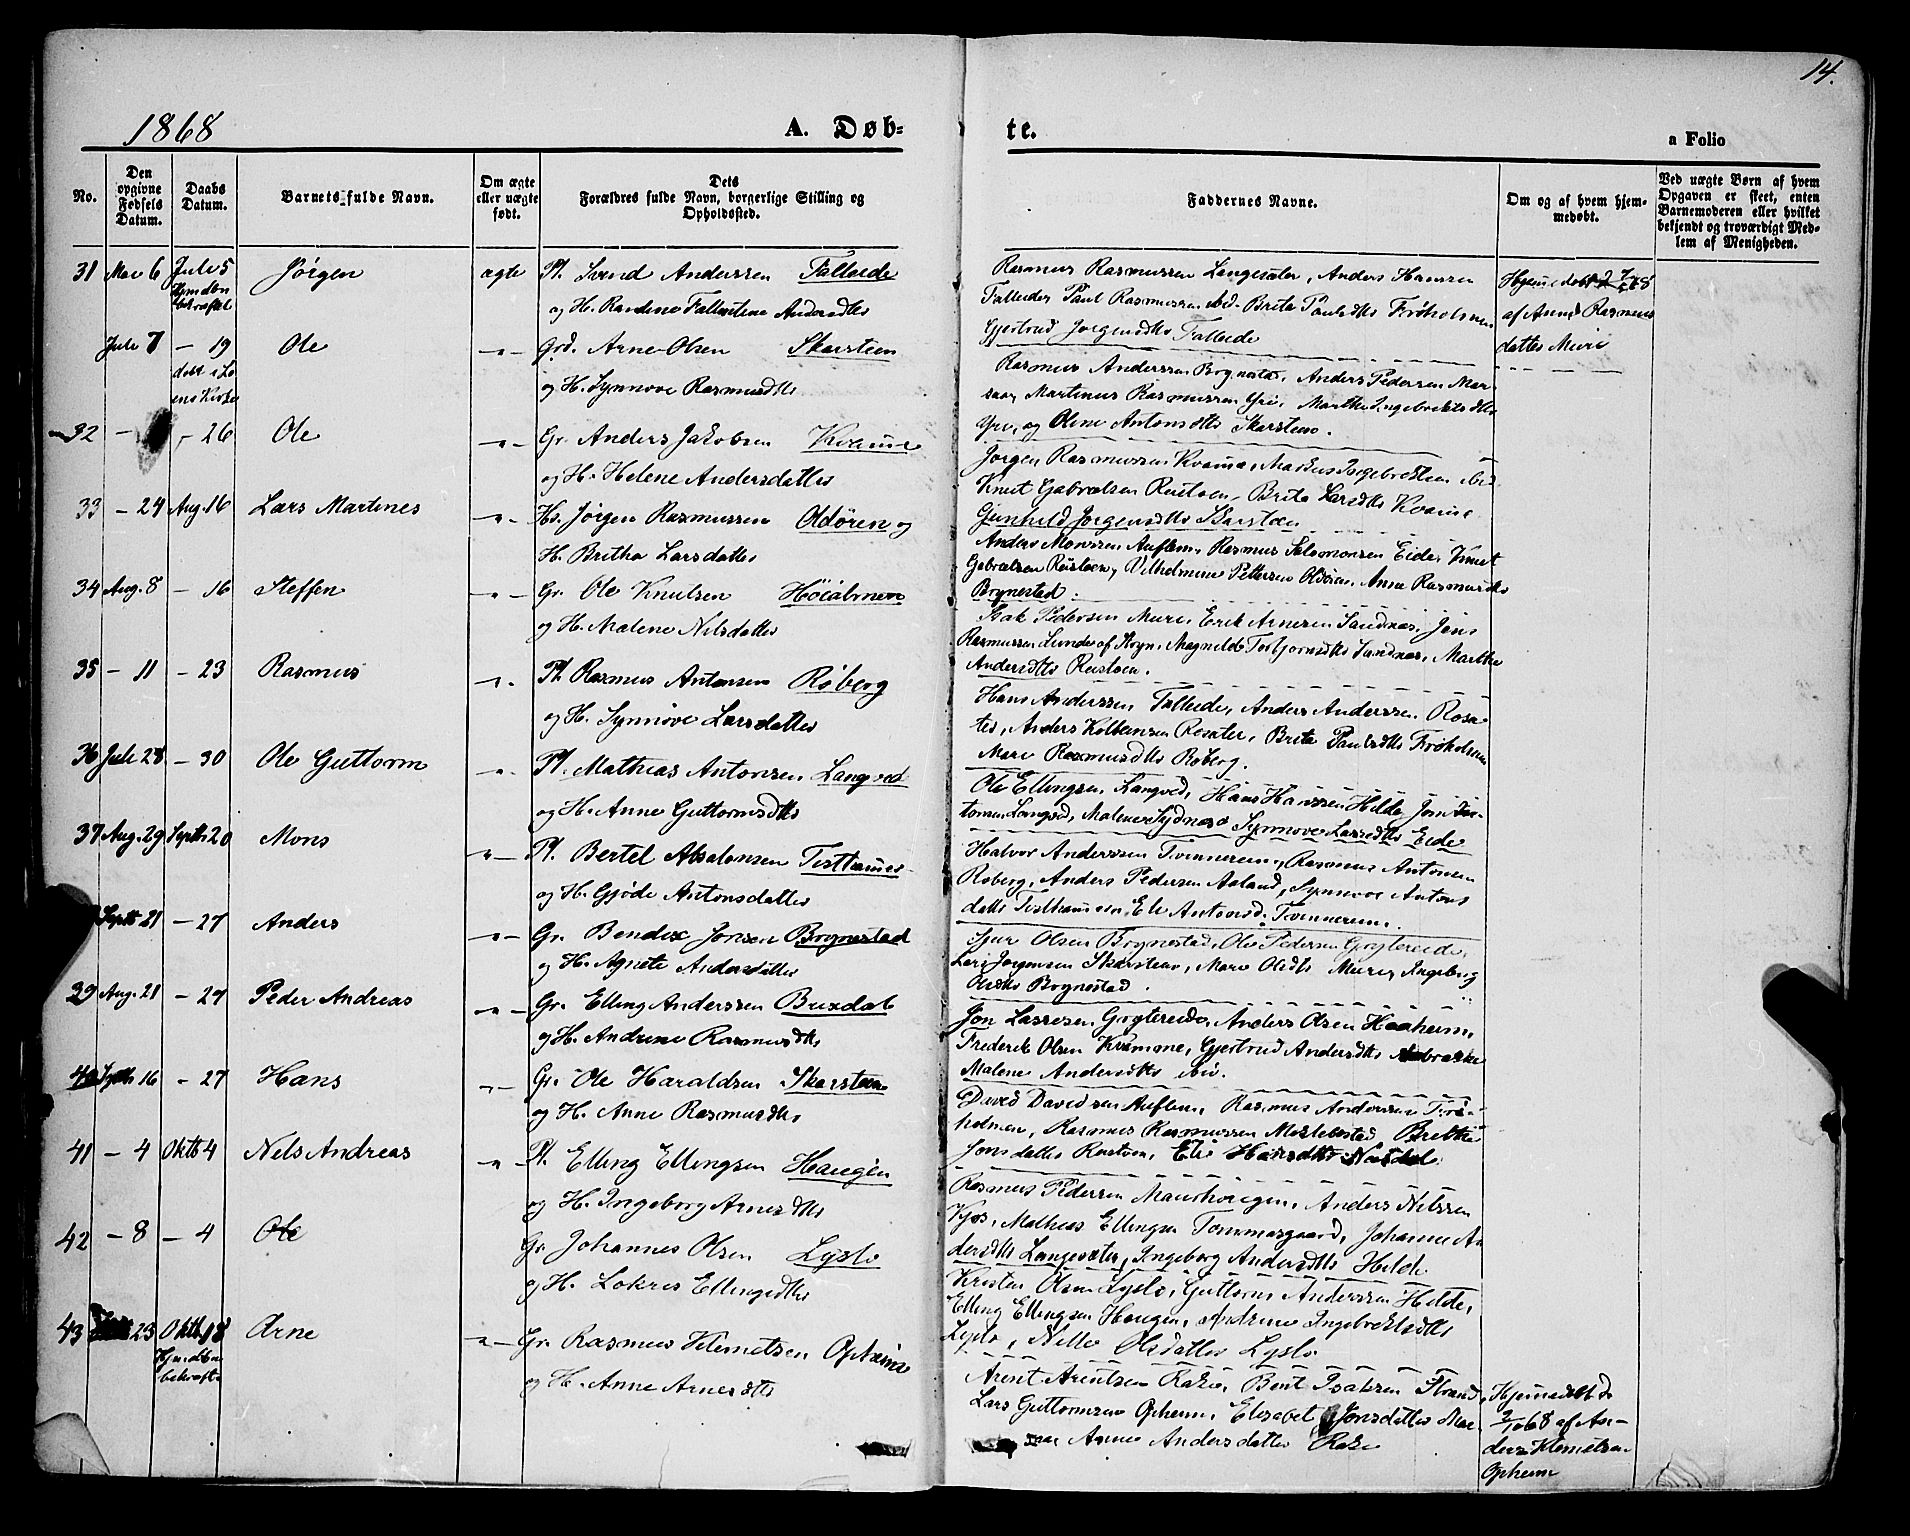 14.
1868 A. Døb- te. a Folio
No.
Den opgivne Fødsels Datum.
Daabs Datum.
Barnets fulde Navn.
Om ægte eller uægte født.
Dets Forældres fulde Navn, borgerlige Stilling og Opholdssted.
Faddernes Navne.
Om og af hvem hjemmedøbt.
Ved uægte Børn af hvem Opgaven er skeet, enten Barnemoderen eller hvilket bekjendt og troværdigt Medlem af Menigheden.
31 Mai 6 Juli 5 Jørgen ægte Pl. Svend Anderssen Falleide
og H. Randine Andersdtts
Rasmus Rasmussen Langesæter, Anders Hansen
Falleide, Paul Rasmussen ibd. Brite Paulsdtts Frøholmen
Gjertrud Jørgensdtts Falleide
Hjemmedøbt
af Anne Rasmus
datter Muri
Juli 7 - 19 Ole -"- Grd. Arne Olsen Skarsteen
og H. Synnove Rasmusdtts
Rasmus Anderssen Brynestad, Anders Pedersen Mar-
saa, Martinus Rasmussen Yri, Marthe Ingebrektsdtts
Yri, og Oline Antonsdtts Skarsteen.
32 - - 26 Ole -"- Gr. Anders Jakobsen Kvame
og H. Helene Andersdatter
Jørgen Rasmussen Kvame, Markus Ingebretsen ibid
Knut Gabrielsen Rustøen, Brite Larsdtts Kvame
Gunhild Jørgensdtts Skarsteen
33 - 24 Aug. 16 Lars Martines -"- Hs. Jørgen Rasmussen Oldören og
H. Britha Larsdatter
Anders Monssen Auflem, Rasmus Salomonsen Eide, Knut
Gabrielsen Rustøen, Vilhelmine Pettersen Oldören, Anne Rasmusdtts
Brynestad.
34 Aug. 8 - 16 Steffen -"- Gr. Ole Knutsen Høialmen
og H. Malene Nilsdatter
Isak Pedersen Muri, Erik Arnesen Sandnæs, Jens
Rasmussen Sunde af Stryn, Magnilde Torbjørnsdtts Sandnæs, Marthe
Andersdtts Rustøen.
35 - 11 - 23 Rasmus -"- Pl. Rasmus Antonsen Røberg
og H. Synnove Larsdatter
Hans Anderssen Falleide, Anders Anderssen Rosæ-
ter, Anders Kolbeinsen Rosæter, Brite Paulsdtts Frøholmen
Mari Rasmusdtts Røberg.
36 Juli 28 - 30 Ole Guttorm -"- Pl. Mathias Antonsen Langved
og H. Anne Guttormsdtts
Ole Ellingsen Langved, Hans Hanssen Hilde, Jon Gut-
tormsen Langved, Malene Sydnæs, Synnove Larsdtts Eide
37 Aug. 29 Septbr 20 Mons -"- Pl. Bertel Absalonsen Tisthamer
og H. Gjøde Antonsdatter
Halvor Anderssen Tvinnereim, Rasmus Antonsen
Røberg, Anders Pedersen Aaland, Synnove Antons
datter Tisthammer, Eli Antonsd. Tvinnereim.
Septbr 21 - 27 Anders -"- Gr. Bendix Jonsen Brynestad
og H. Agnete Andersdatter
Sjur Olsen Brynestad, Ole Pedersen Grytereide,
Lars Jørgensen Skarsteen, Mari Olsdtts Muri, Ingeborg
Olsdtts Brynestad.
39 Aug. 21 - 27 Peder Andreas -"- Gr. Elling Anderssen Brixdal
og H. Andrine Rasmusdtts
Jon Lassesen Grytereide, Anders Olsen Haaheim,
Frederik Olsen Kvamme, Gjertrud Andersdtts
Malene Andersdtts ibid.
40 Septbr 16 - 27 Hans -"- Gr. Ole Haraldsen Skarsteen
og H. Anne Rasmusdtts
David Davidsen Auflem, Rasmus Anderssen Frø-
holmen, Rasmus Rasmussen Melebostad, Brithe
Jonsdatter Rustøen, Eli Hansdtts
41 - 4 Oktb 4 Nels Andreas -"- Pl. Elling Ellingsen Haugen
og H. Ingeborg Arnesdtts
Rasmus Pedersen Maurhougen, Anders Nilssen
Kjøs, Mathias Ellingsen Tommasgaard, Johanne An
dersdtts Langesæter, Ingeborg Andersdtts Hilde
42 - 8 - 4 Ole Gr. Johannes Olsen Lyslo
og H. Lokris Ellingsdtts
Kristen Olsen Lyslo, Guttorm Anderssen Hilde,
Elling Ellingsen Haugen, Andrine Ingebrektsdtts
Lyslo, Nille Olsdatter Lyslo
43 23 Oktb. 18 Arne -"- Gr. Rasmus Klemetsen Opheim
og H. Anne Arnesdtts
Arent Arentsen Rake, Bent Isaksen Strand,
Lars Guttormsen Opheim, Elisabet Jonsdatter
Anne Andersdatter Rake
Hjemmedøbt d.
2/10 68 af An-
ders Klemetsen
Opheim